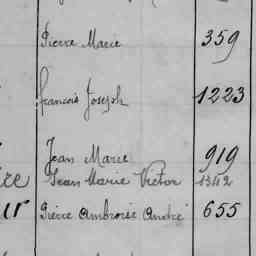 Pierre Marie 359
francois Joseph 1223
Jean Marie 919
Jean Marie Victor 1342
Pierre Ambroise André 655